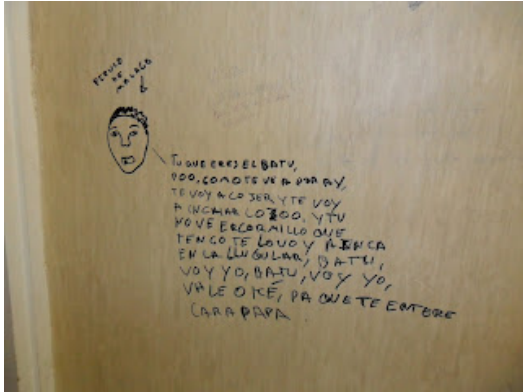 PERULO
DE
MALAGA
TU QUE ERES EL BATU,
POO, COMO TE VEA POR AY,
TE VOY A COJER, Y TE VOY
A INCHAR LO JOO, Y TU
NO VE ER CORNILLO QUE
TENGO TE LO VOY A INCA
EN LA LLUGULAR, BATU,
VOY YO, BATU, VOY YO,
VALE O KÉ, PA QUE TE ENTERE
CARAPAPA